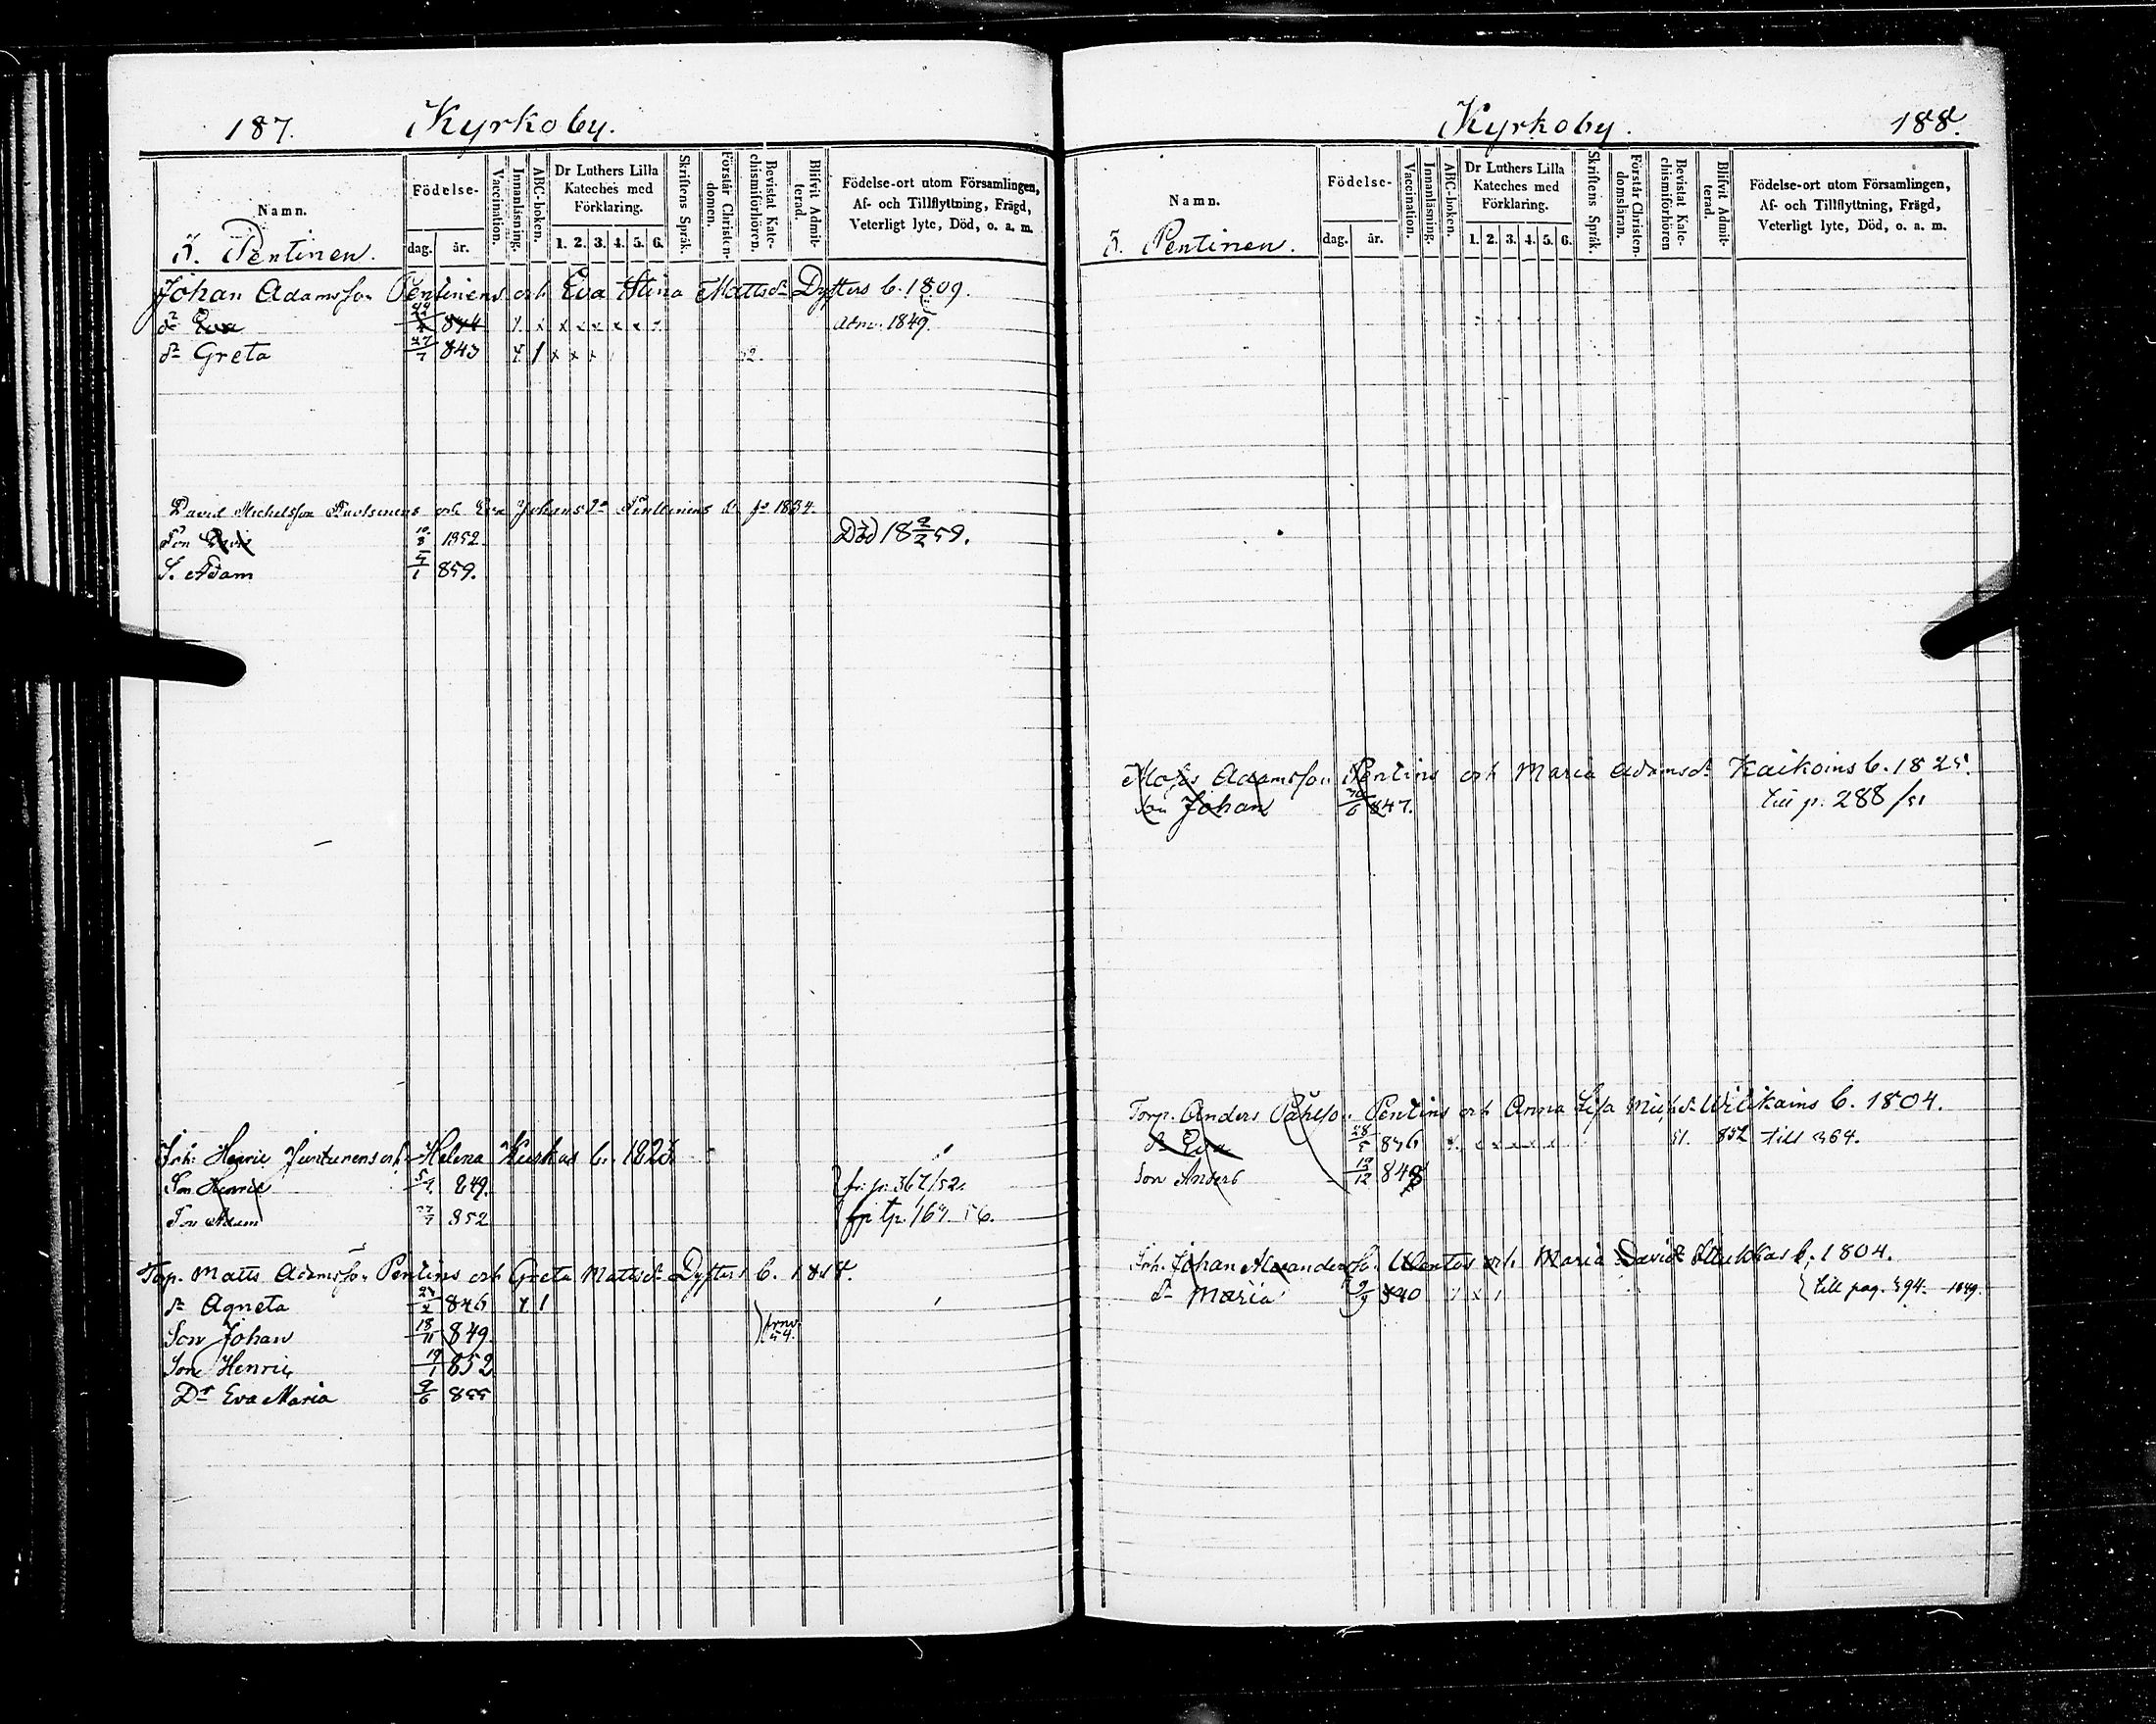 187. Kyrkoby.
Namn.
Födelse-
dag. år.
Vaccination.
Innanläsning.
ABC-boken.
Dr Luthers Lilla
Kateches med
Förklaring.
1. 2. 3. 4. 5. 6.
Skriftens Språk.
Förstår Christen-
domen.
Bevistat Kate-
chismiförhören.
Blifvit Admit-
terad.
Födelse-ort utom Församlingen,
Af- och Tillflyttning, Frägd,
Veterligt lyte, Död, o. a. m.
5. Pentinen.
Johan Adamsson Pentinens och Eva Stina Mattsdr Dysters b. 1809.
dr Eva 844 1849.
dr Greta 27/7 843
David Michelsson och Eva Johansdr Pentinens b. 1834.
Son 10/8 1852. Död 18 9/2 59.
S. Adam 5/1 859.
Inh. Henric och Helena b.
Son Henric 849. fr. p. 367/52.
Son Adam 852 p. 169. 56.
Torp. Matts Adamsson Pentins och Greta Mattsdr Dysters b. 1818.
dr Agneta 846
Son Johan 18/11 849.
Son Henric 19/1 852
Dr Eva Maria 9/6 855
Kyrkoby. 188.
Namn.
Födelse-
dag. år.
Vaccination.
Innanläsning.
ABC-boken.
Dr Luthers Lilla
Kateches med
Förklaring.
1. 2. 3. 4. 5. 6.
Skriftens Språk.
Förstår Christen-
domsläran.
Bevistat Kate-
chismiförhören
Blifvit Admit-
terad.
Födelse-ort utom Församlingen,
Af- och Tillflyttning, Frägd,
Veterligt lyte, Död, o. a. m.
5. Pentinen.
Moses Adamsson Pentins och Maria Adamsdr Kaikoins b. 1825.
Son Johan 30/6 847. till p. 288/51
Torp. Anders Påhlson Pentins och Anna Lisa Michsdr Wilikains b. 1804.
dr Eva 28/5 836 51. 852 till 364.
Son Anders 19/12 848
Inh. Johan Alexandersson och Maria Davidsdr b. 1804.
dr Maria 840 till pag. 394. 1849.